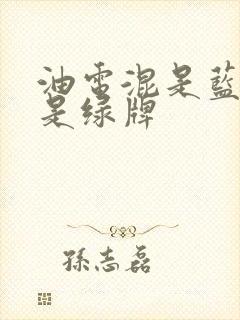 油電混是藍
是绿牌
孫志磊